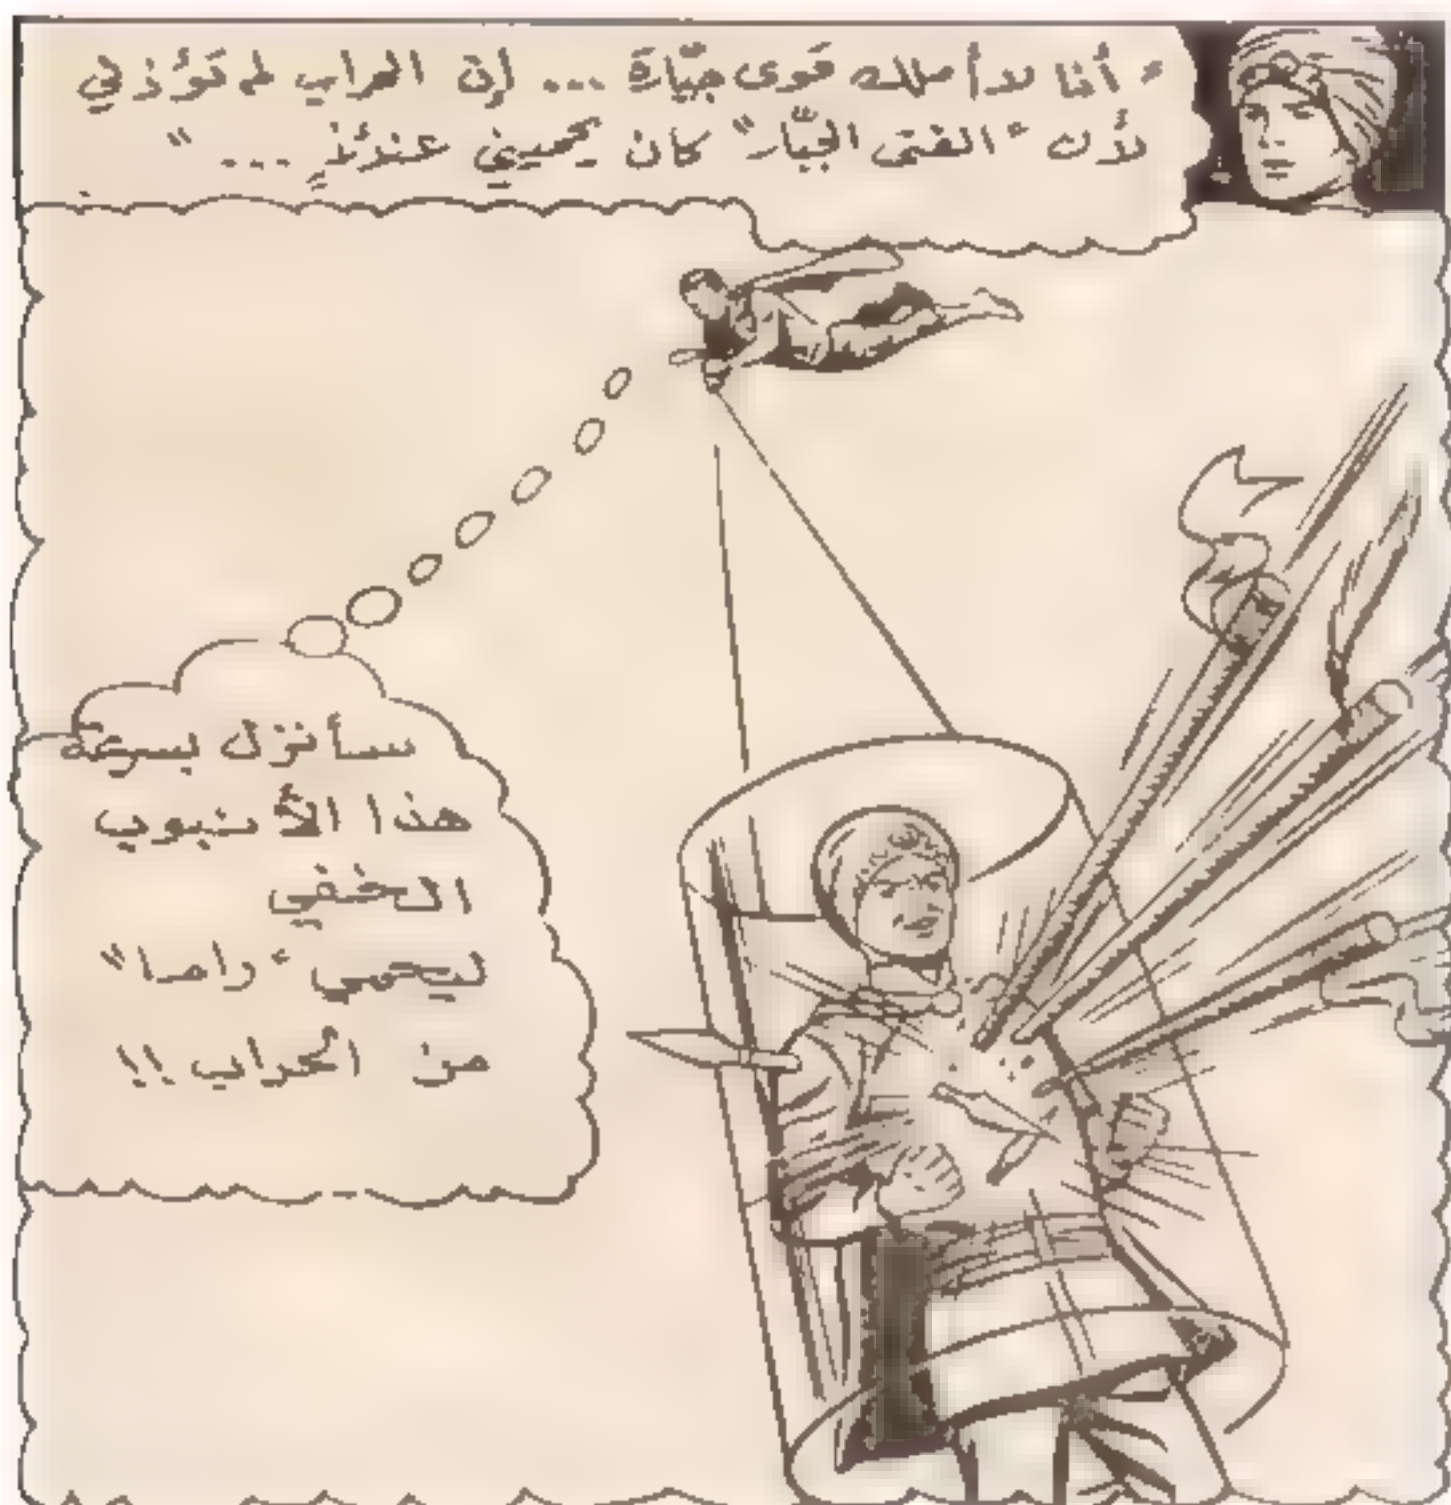 " أنا لا أملك قوى جبّارة ... إن الحراب لم تؤذني
لأن " الفتى الجبّار " كان يحميني عندئذٍ ... "
سأنزل بسرعة
هذا الأنبوب
الخفي
ليحمي " راما "
من الحراب !!